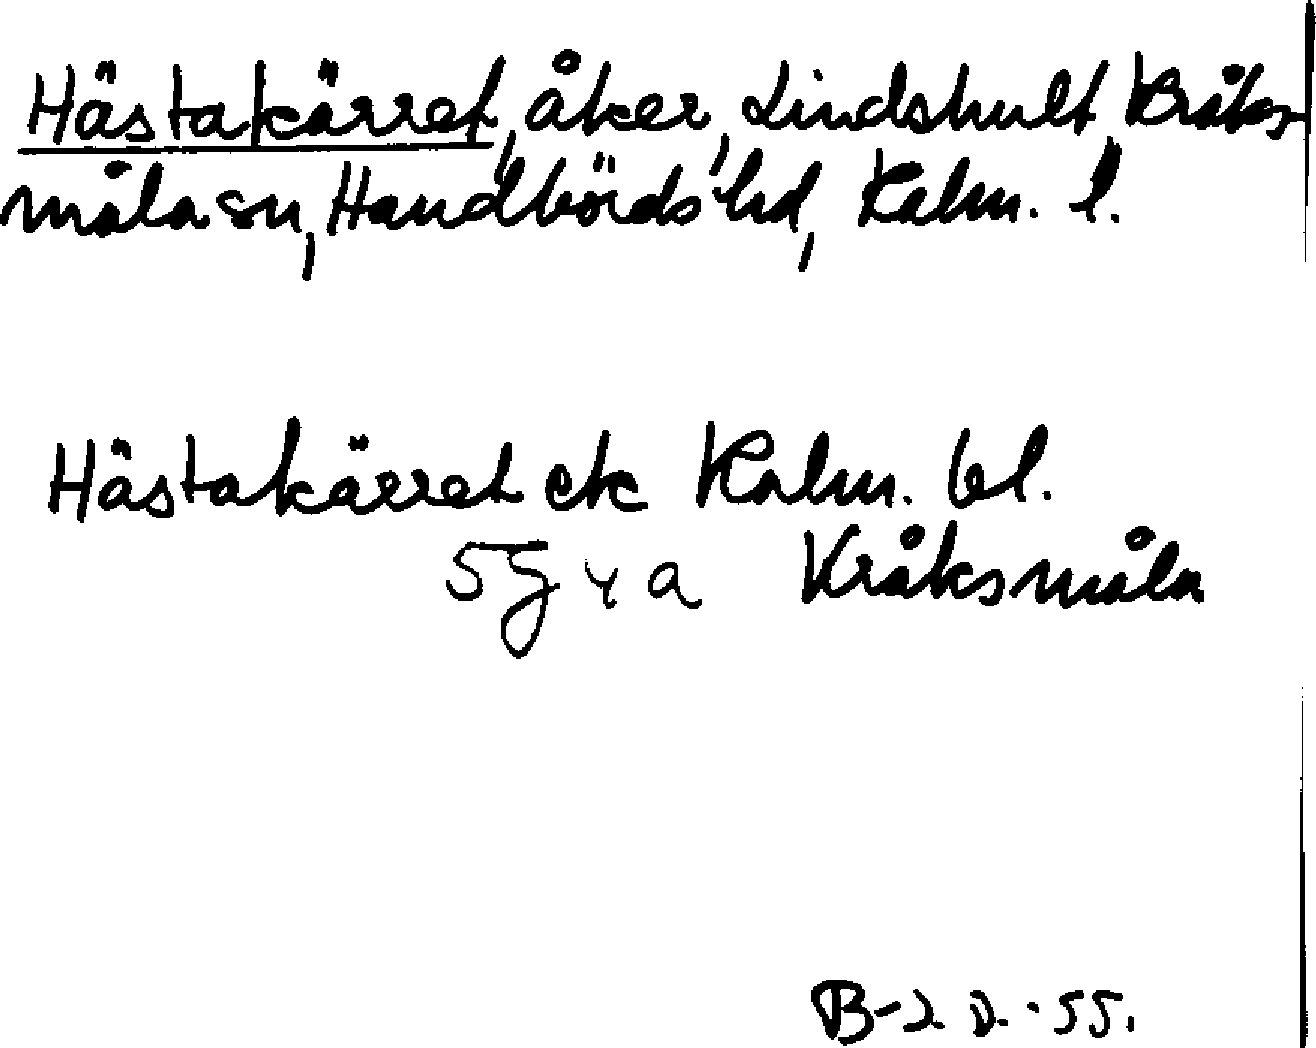 Hästakärret, åker, Lindshult, Kråks-
måla sn, Handbörds hd, Kalm. l.
Hästakärret ek Kalm. bl.
5G 4a Kråksmåla